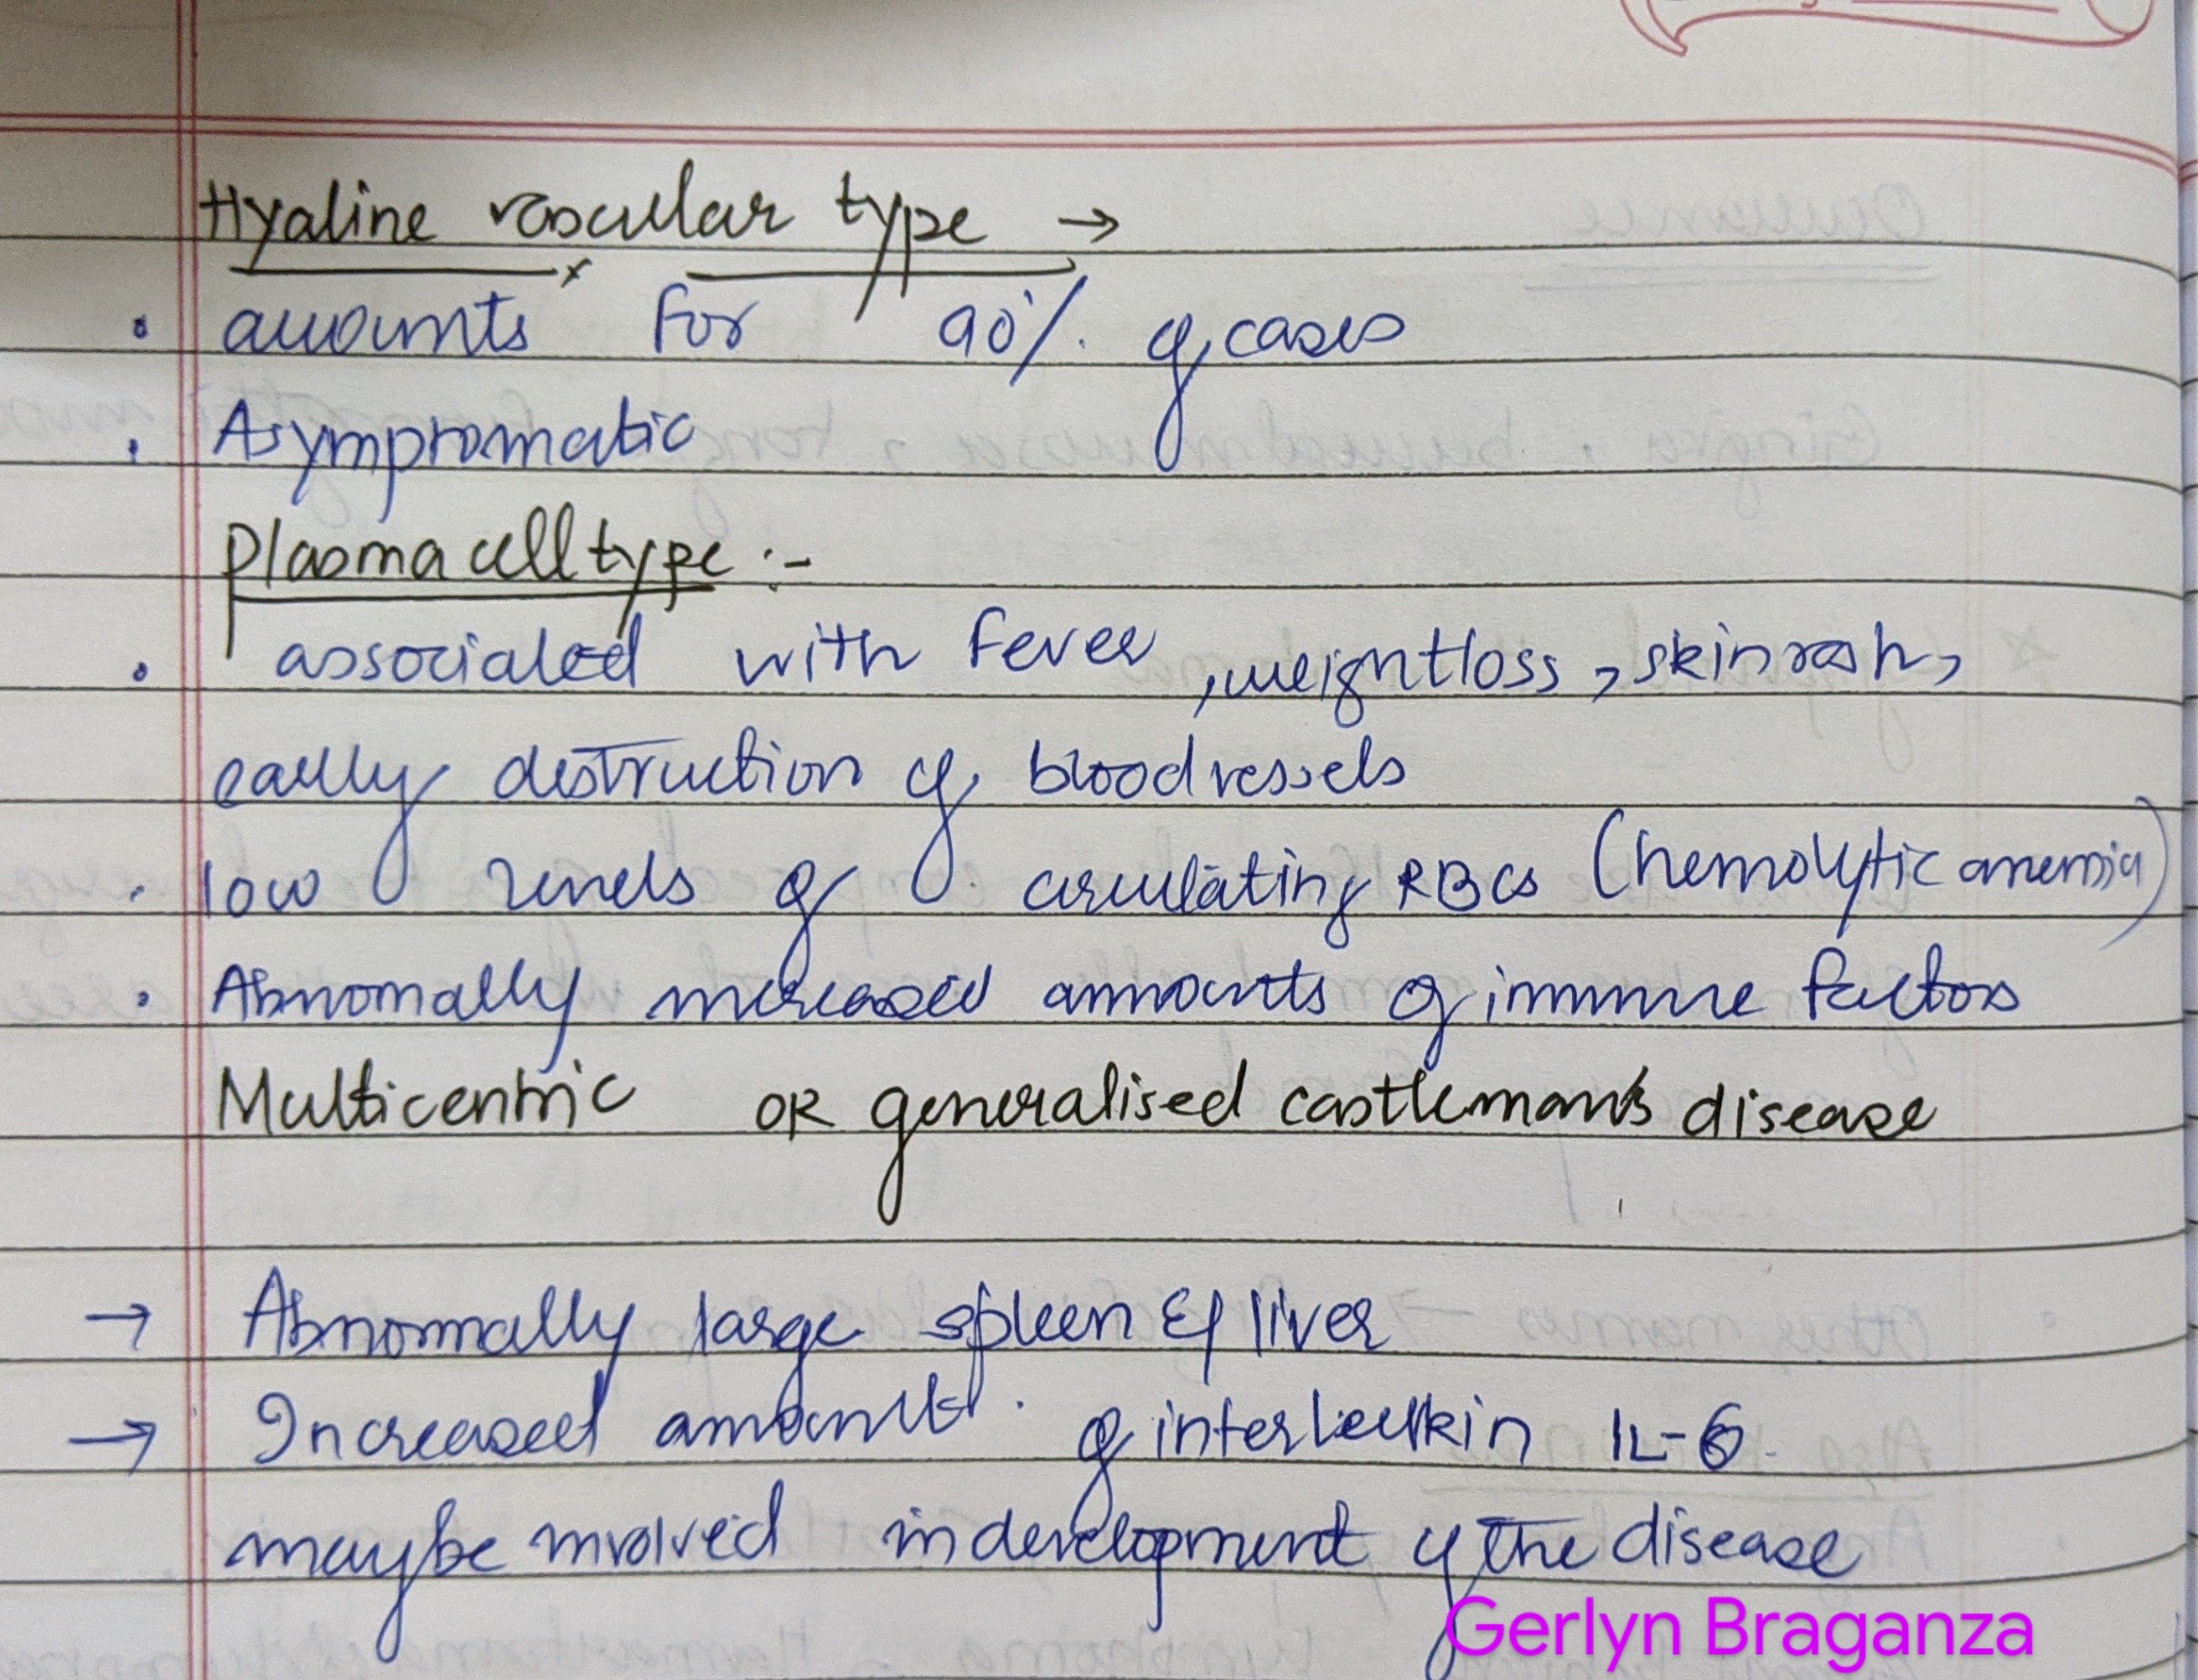 Hyaline vascular type →
• accounts for 90% of cases
• Asympromatic
Plasma cell type :-
• associated with fever, weight loss, skin rash,
early destruction of blood vessels
• low levels of circulating RBCs (hemolytic anemia)
• Abnomally increased amounts of immune factors
Multicentric OR generalised castleman's disease
→ Abnormally large spleen & liver
→ Increased amount of interleukin IL-6
maybe involved in development of the disease
Gerlyn Braganza